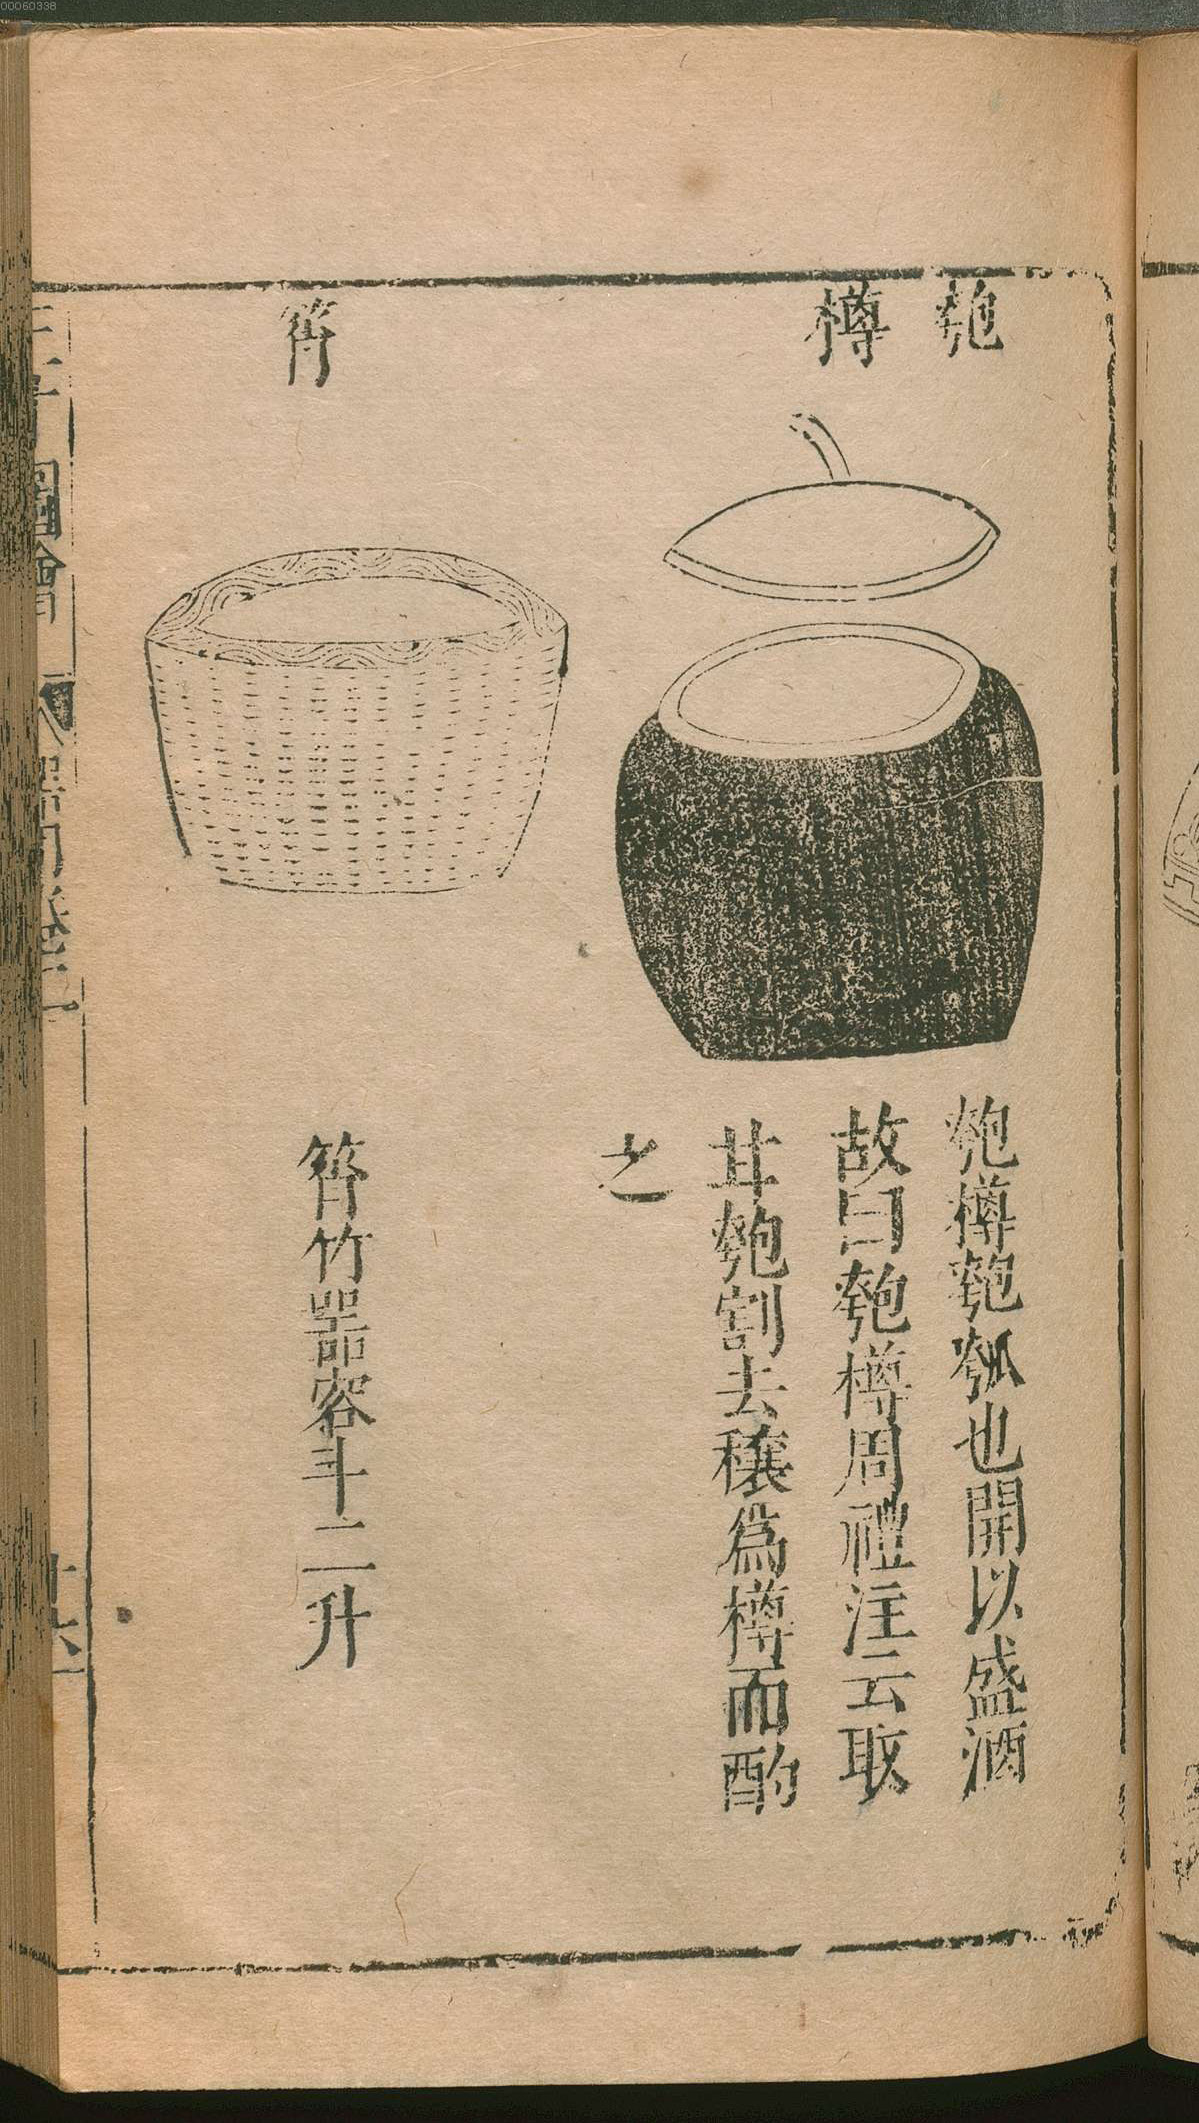 00060338
匏
樽
匏樽匏瓠也開以盛酒
故曰匏樽周禮注云取
甘匏割去穰為樽而酌
之
筲
筲竹器容斗二升
三才圖會 器用卷二
十六